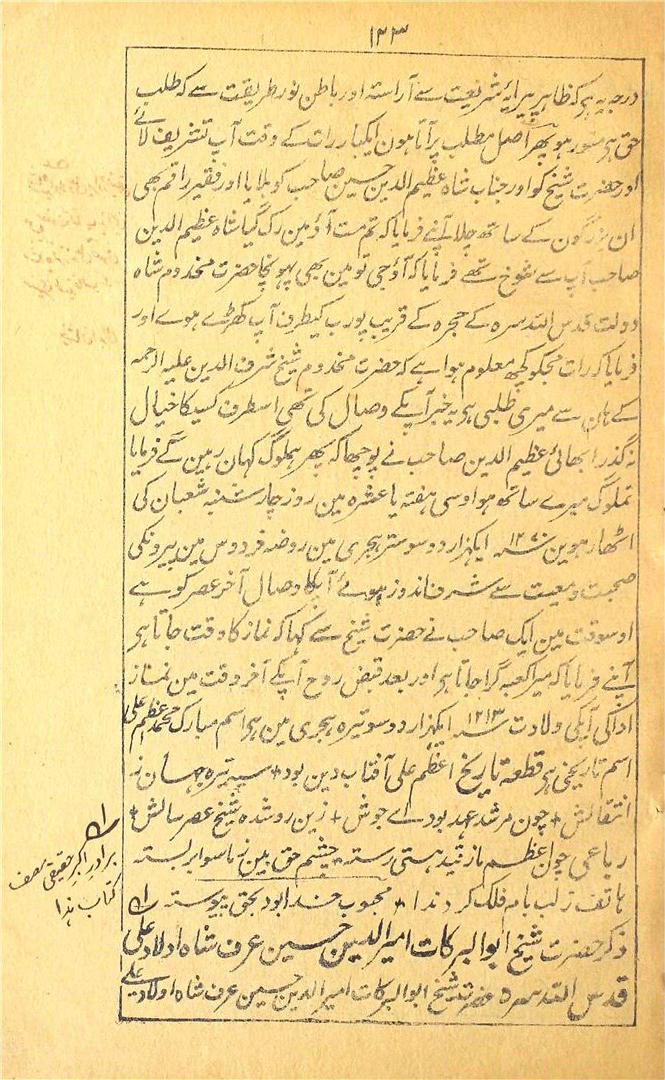 ۱۳۳
درجہ یہ ہیکہ ظاہر پیرایۂ شریعت سے آراستہ اور باطن نور طریقت سے کہ طلب
حق ہی منور ہو پھر اصل مطلب پر آتا ہون ایکبار رات کے وقت آپ تشریف لائے
اور حضرت شیخ کو اور جناب شاہ عظیم الدین حسین صاحب کو بلایا اور فقیر راقم بھی
ان بزرگون کے ساتھ چلا آپنے فرمایا کہ تم مت آؤ مین رک گیا شاہ عظیم الدین
صاحب آپ سے شوخ تھے فرمایا کہ آؤ جی تو مین بھی پہونچا حضرت مخدوم شاہ
دولت قدس اللہ سرہ کے حجرہ کے قریب پورب کیطرف آپ کھڑے ہوے اور
فرمایا کہ رات مجکو کچھ معلوم ہوا ہے کہ حضرت مخدوم شیخ شرف الدین علیہ الرحمہ
کے ہان سے میری طلبی ہی یہ خبر آپکے وصال کی تھی اسطرف کسیکا خیال
نہ گذرا بھائی عظیم الدین صاحب نے پوچھا کہ پھر ہملوگ کہان رہین گے فرمایا
تملوگ میرے ساتھ ہو اوسی ہفتہ یا عشرہ مین روز چار شنبہ شعبان کی
اٹھارہوین ۱۲۷۰ سنہ ایکہزار دو سو ستر ہجری مین روضہ فردوس مین پیرونکی
صحبت و معیت سے شرف اندوز ہوئے آپکا وصال آخر عصر کو ہے
اوسوقت مین ایک صاحب نے حضرت شیخ سے کہا کہ نماز کا وقت جاتا ہی
آپنے فرمایا کہ میرا کعبہ گرا جاتا ہی اور بعد قبض روح آپکے آخر وقت مین نماز
ادا کی آپکی ولادت ۱۲۱۳ سنہ ایکہزار دو سو تیرہ ہجری مین ہی اسم مبارک محمد اعظم علی
اسم تاریخی ہی قطعہ تاریخ اعظم علی آفتاب دین بود + سیہ تیرہ جہان ز
انتقالش + چون مرشد عہد بود اے جوش + زین رو شدہ شیخ عصر سالش +
رباعی چون اعظم ما ز قید ہستی رستہ + چشم حق بین ز ما سوا بر بستہ
ہاتف ز لب بام فلک کرد ندا + محبوب خدا بود بحق پیوستہ
ذکر حضرت شیخ ابو البرکات امیر الدین حسین عرف شاہ اولاد علی
قدس اللہ سرہ حضرت شیخ ابو البرکات امیر الدین حسین عرف شاہ اولاد علی
برادر اکبر حقیقی مصنف
کتاب ہذا